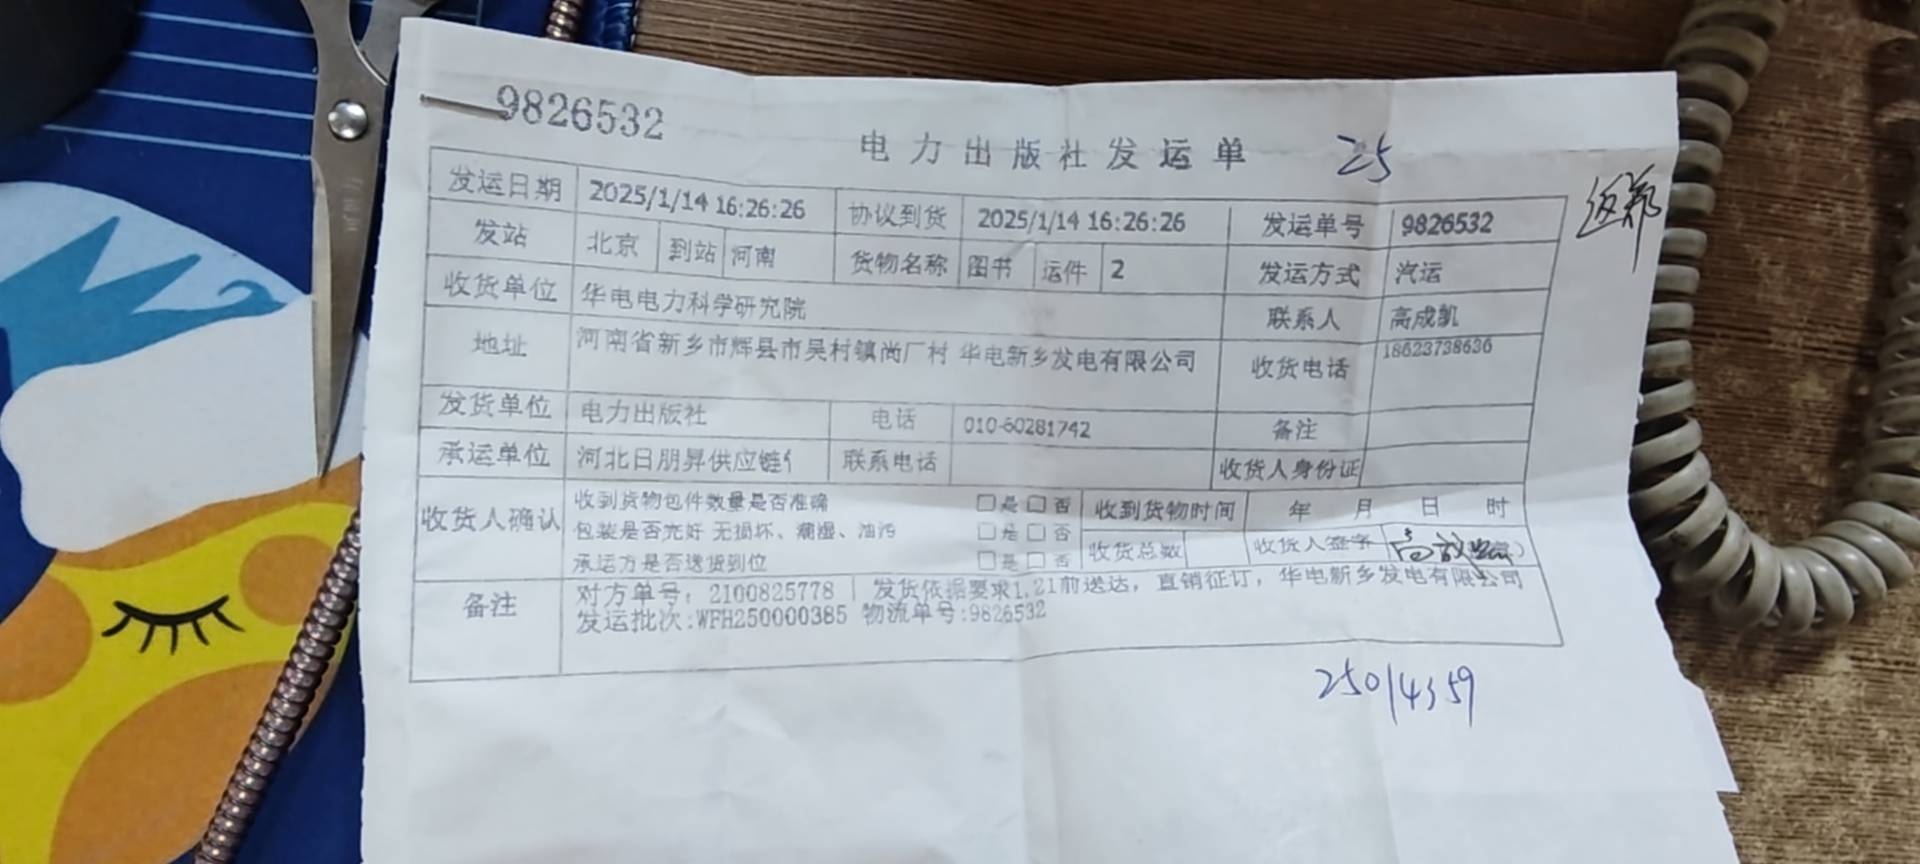 9826532
电力出版社发运单 25
返郑
发运日期 2025/1/14 16:26:26 协议到货 2025/1/14 16:26:26 发运单号 9826532
发站 北京 到站 河南 货物名称 图书 运件 2 发运方式 汽运
收货单位 华电电力科学研究院 联系人 高成凯
地址 河南省新乡市辉县市吴村镇尚厂村 华电新乡发电有限公司 收货电话 18623738636
发货单位 电力出版社 电话 010-60281742 备注
承运单位 河北日朋昇供应链 联系电话 收货人身份证
收货人确认 收到货物包件数量是否准确 □是□否 收到货物时间 年 月 日 时
包装是否完好 无损坏、潮湿、油污 □是□否
承运方是否送货到位 □是□否 收货总数 收货人签字
备注 对方单号: 2100825778 | 发货依据要求1.21前送达, 直销征订, 华电新乡发电有限公司
发运批次:WFH250000385 物流单号:9826532
25014359